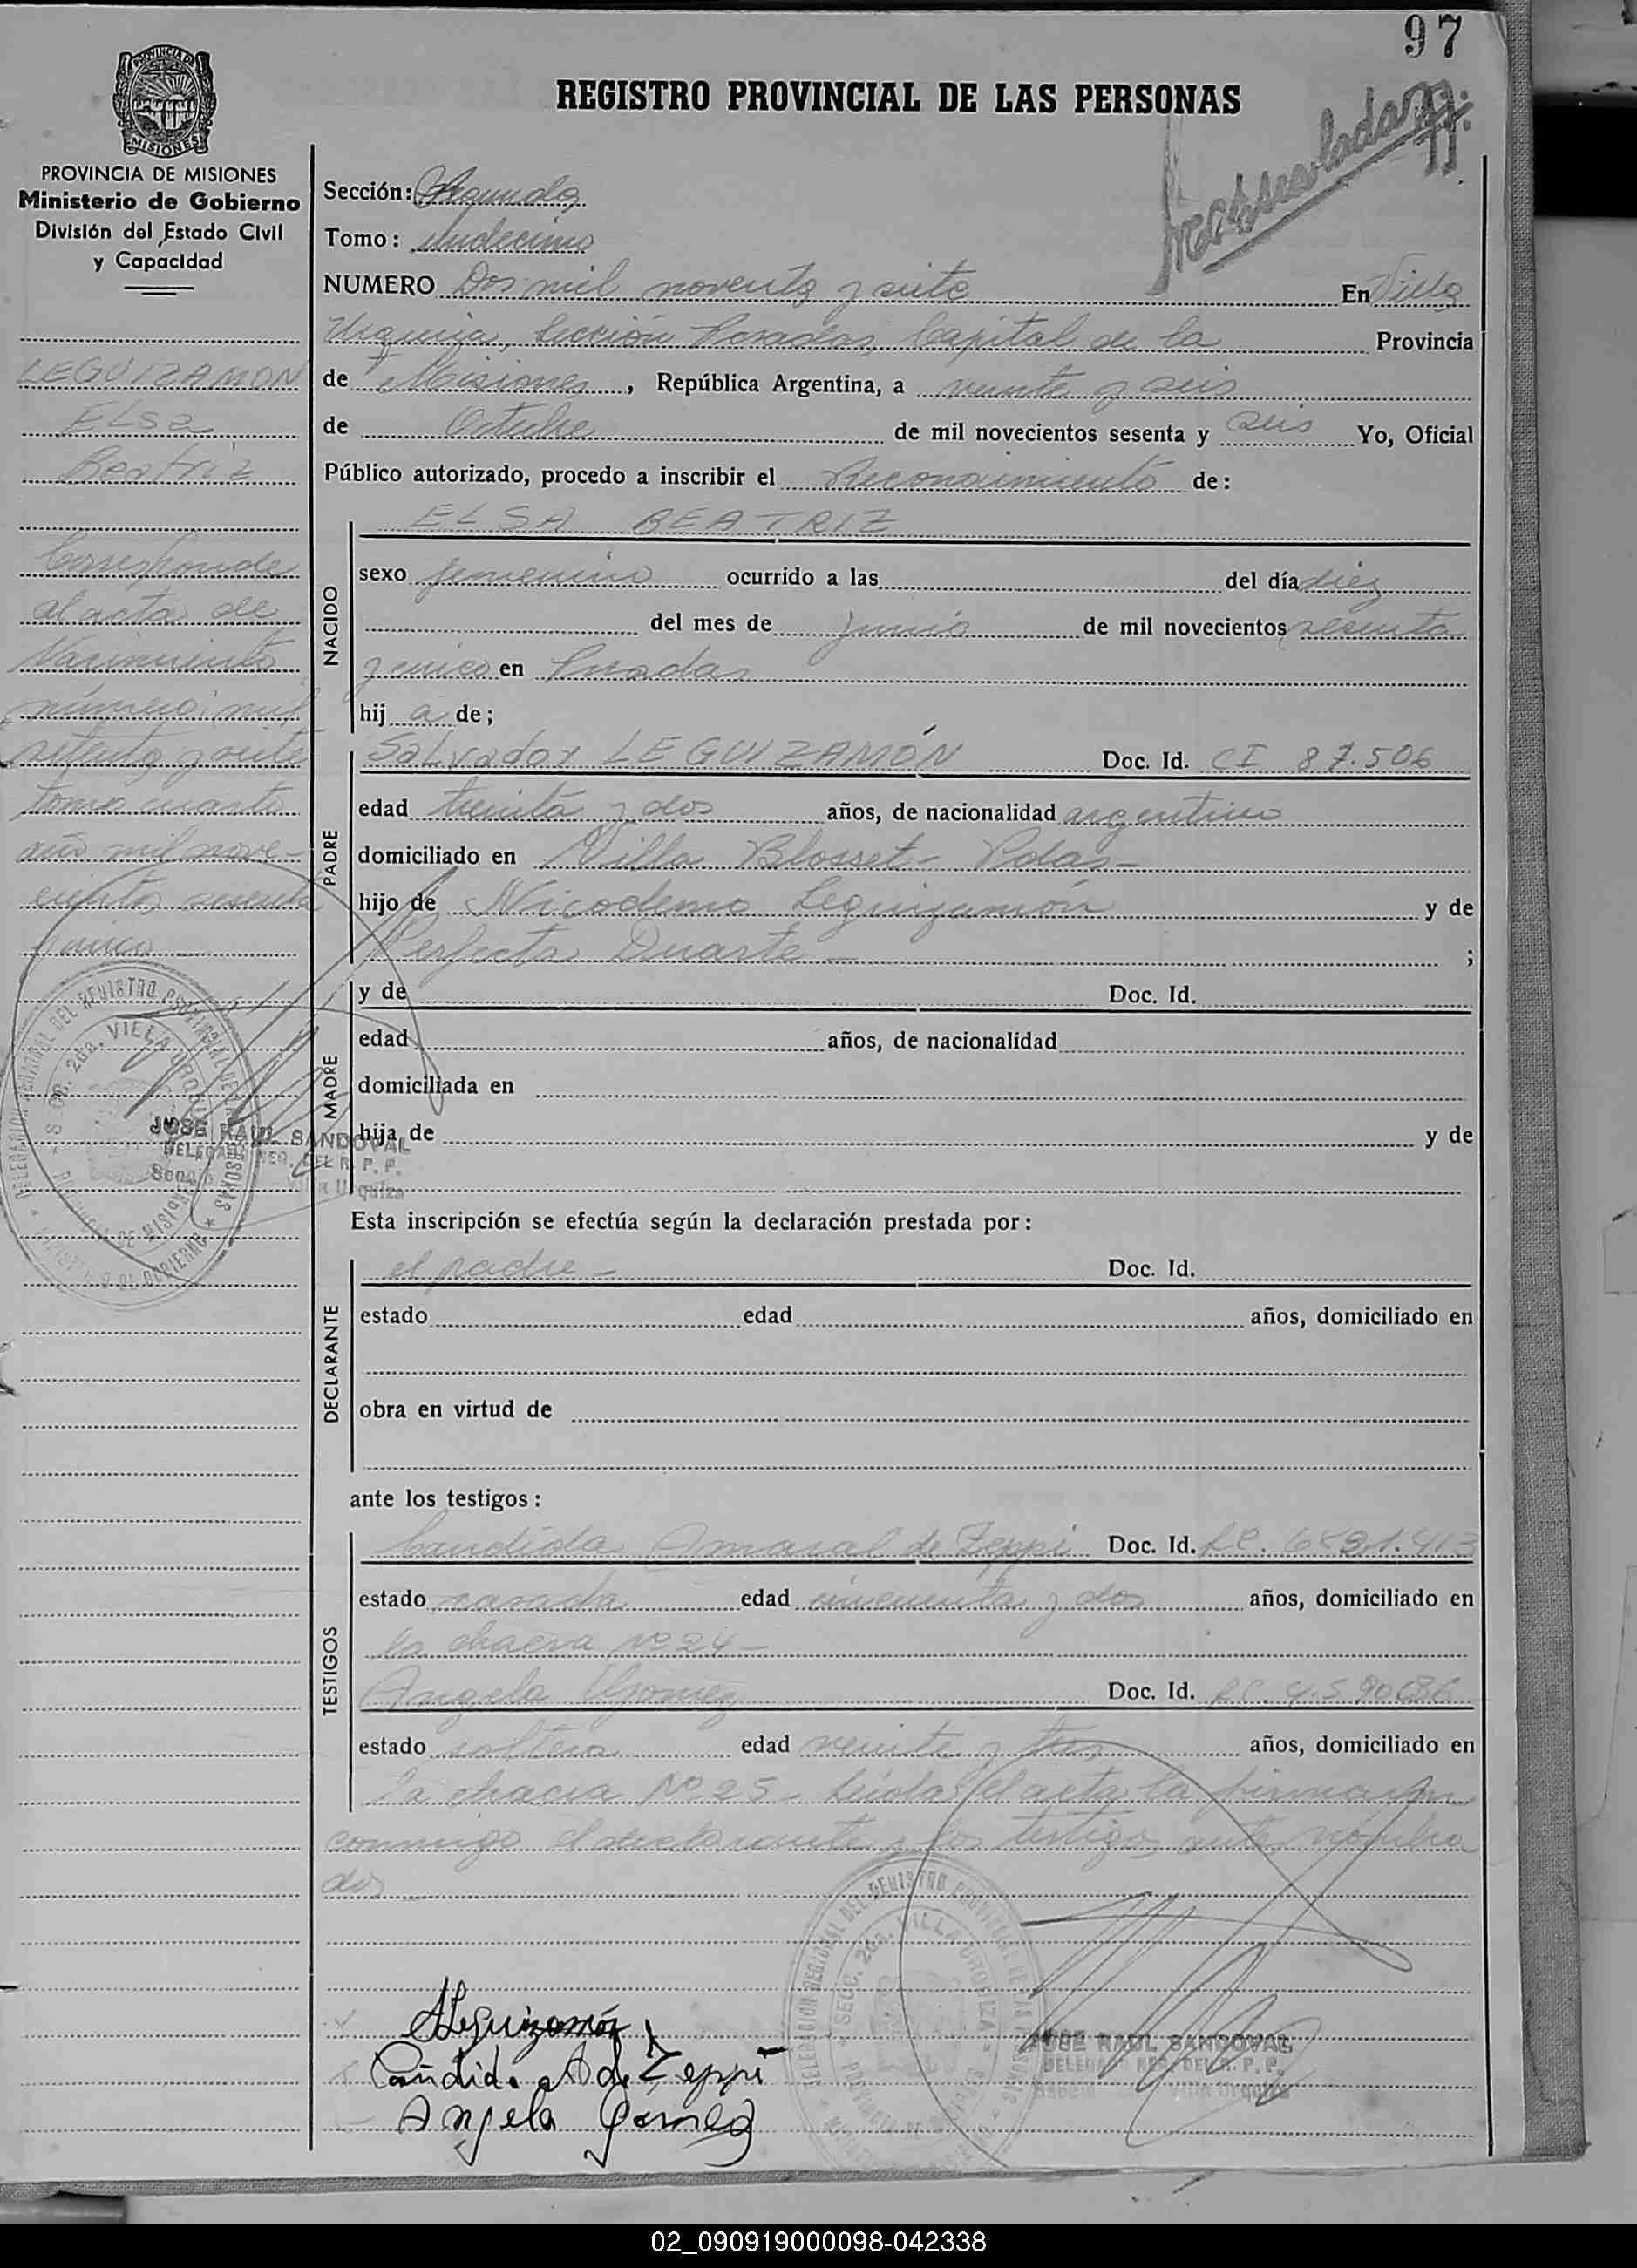 97
REGISTRO PROVINCIAL DE LAS PERSONAS
PROVINCIA DE MISIONES
Ministerio de Gobierno
División del Estado Civil
y Capacidad
LEGUIZAMON
ELSA
Beatriz
Corresponde
al acta de
Nacimiento
número: mil
setenta y siete
tomo cuarto
año mil nove-
cientos sesenta
y cinco
Sección: Segunda
Tomo: undécimo
NUMERO Dos mil noventa y siete En Villa
Urquiza, Sección Posadas, Capital de la Provincia
de Misiones, República Argentina, a veinte y seis
de Octubre de mil novecientos sesenta y seis Yo, Oficial
Público autorizado, procedo a inscribir el Reconocimiento de:
NACIDO
ELSA BEATRIZ
sexo femenino ocurrido a las del día diez
del mes de junio de mil novecientos sesenta
y cinco en Posadas
hij a de;
PADRE
Salvador LEGUIZAMÓN Doc. Id. CI 87.506
edad treinta y dos años, de nacionalidad argentino
domiciliado en Villa Blosset - Pdas -
hijo de Nicodemo Leguizamón y de
Perfecta Duarte - ;
MADRE
y de Doc. Id.
edad años, de nacionalidad
domiciliada en
hija de y de
JOSE RAUL SANDOVAL
DELEGADO REG. DEL R. P. P.
Villa Urquiza
Esta inscripción se efectúa según la declaración prestada por:
DECLARANTE
el padre - Doc. Id.
estado edad años, domiciliado en
obra en virtud de
ante los testigos:
TESTIGOS
Candida Amaral de Zeppi Doc. Id. LC.
estado casada edad cincuenta y dos años, domiciliado en
la chacra Nº 24 -
Angela Gomez Doc. Id. LC.
estado soltera edad veinte y tres años, domiciliado en
la chacra Nº 25 - Leída el acta la firmaron
conmigo el declarante y los testigos antes nombra
dos
SLeguizamón
Candida A de Zeppi
Angela Gomez
DELEGACION REGIONAL DEL REGISTRO PROVINCIAL DE LAS PERSONAS
SECC. 2da. VILLA URQUIZA
JOSE RAUL SANDOVAL
DELEGADO REG. DEL R. P. P.
Villa Urquiza
02_090919000098-042338